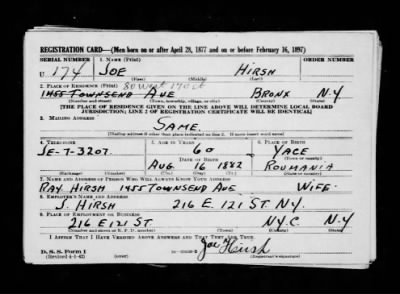 REGISTRATION CARD—(Men born on or after April 28, 1877 and on or before February 16, 1897)
SERIAL NUMBER 1. NAME (Print) ORDER NUMBER
U 174 JOE HIRSH
(First) (Middle) (Last)
2. PLACE OF RESIDENCE (Print) 80 West 170 St
1455 TOWNSEND AVE BRONX N.Y
(Number and street) (Town, township, village, or city) (County) (State)
[THE PLACE OF RESIDENCE GIVEN ON THE LINE ABOVE WILL DETERMINE LOCAL BOARD
JURISDICTION; LINE 2 OF REGISTRATION CERTIFICATE WILL BE IDENTICAL]
3. MAILING ADDRESS
SAME.
[Mailing address if other than place indicated on line 2. If same insert word same]
4. TELEPHONE 5. AGE IN YEARS 6. PLACE OF BIRTH
60 YACE
JE-7-3207. DATE OF BIRTH (Town or county)
AUG. 16 1882 ROUMANIA
(Exchange) (Number) (Mo.) (Day) (Yr.) (State or country)
7. NAME AND ADDRESS OF PERSON WHO WILL ALWAYS KNOW YOUR ADDRESS
RAY HIRSH 1455 TOWNSEND AVE. WIFE.
8. EMPLOYER'S NAME AND ADDRESS
J. HIRSH 216 E. 121 ST. N.Y.
9. PLACE OF EMPLOYMENT OR BUSINESS
216 E 121 ST. N.Y.C. N.Y
(Number and street or R. F. D. number) (Town) (County) (State)
I AFFIRM THAT I HAVE VERIFIED ABOVE ANSWERS AND THAT THEY ARE TRUE.
D. S. S. Form 1
(Revised 4-1-42) (over) Joe Hirsh
(Registrant's signature)